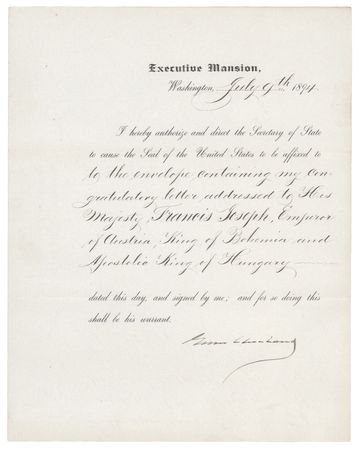 Executive Mansion,
Washington, July 9th 1894.
I hereby authorize and direct the Secretary of State
to cause the Seal of the United States to be affixed to
to the envelope containing my con-
gratulatory letter addressed to His
Majesty, Francis Joseph, Emperor
of Austria, King of Bohemia and
Apostolic King of Hungary
dated this day, and signed by me; and for so doing this
shall be his warrant.
Grover Cleveland